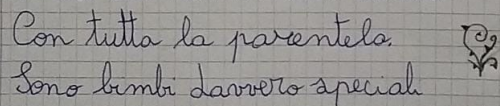 Con tutta la parentela.
Sono bimbi davvero speciali